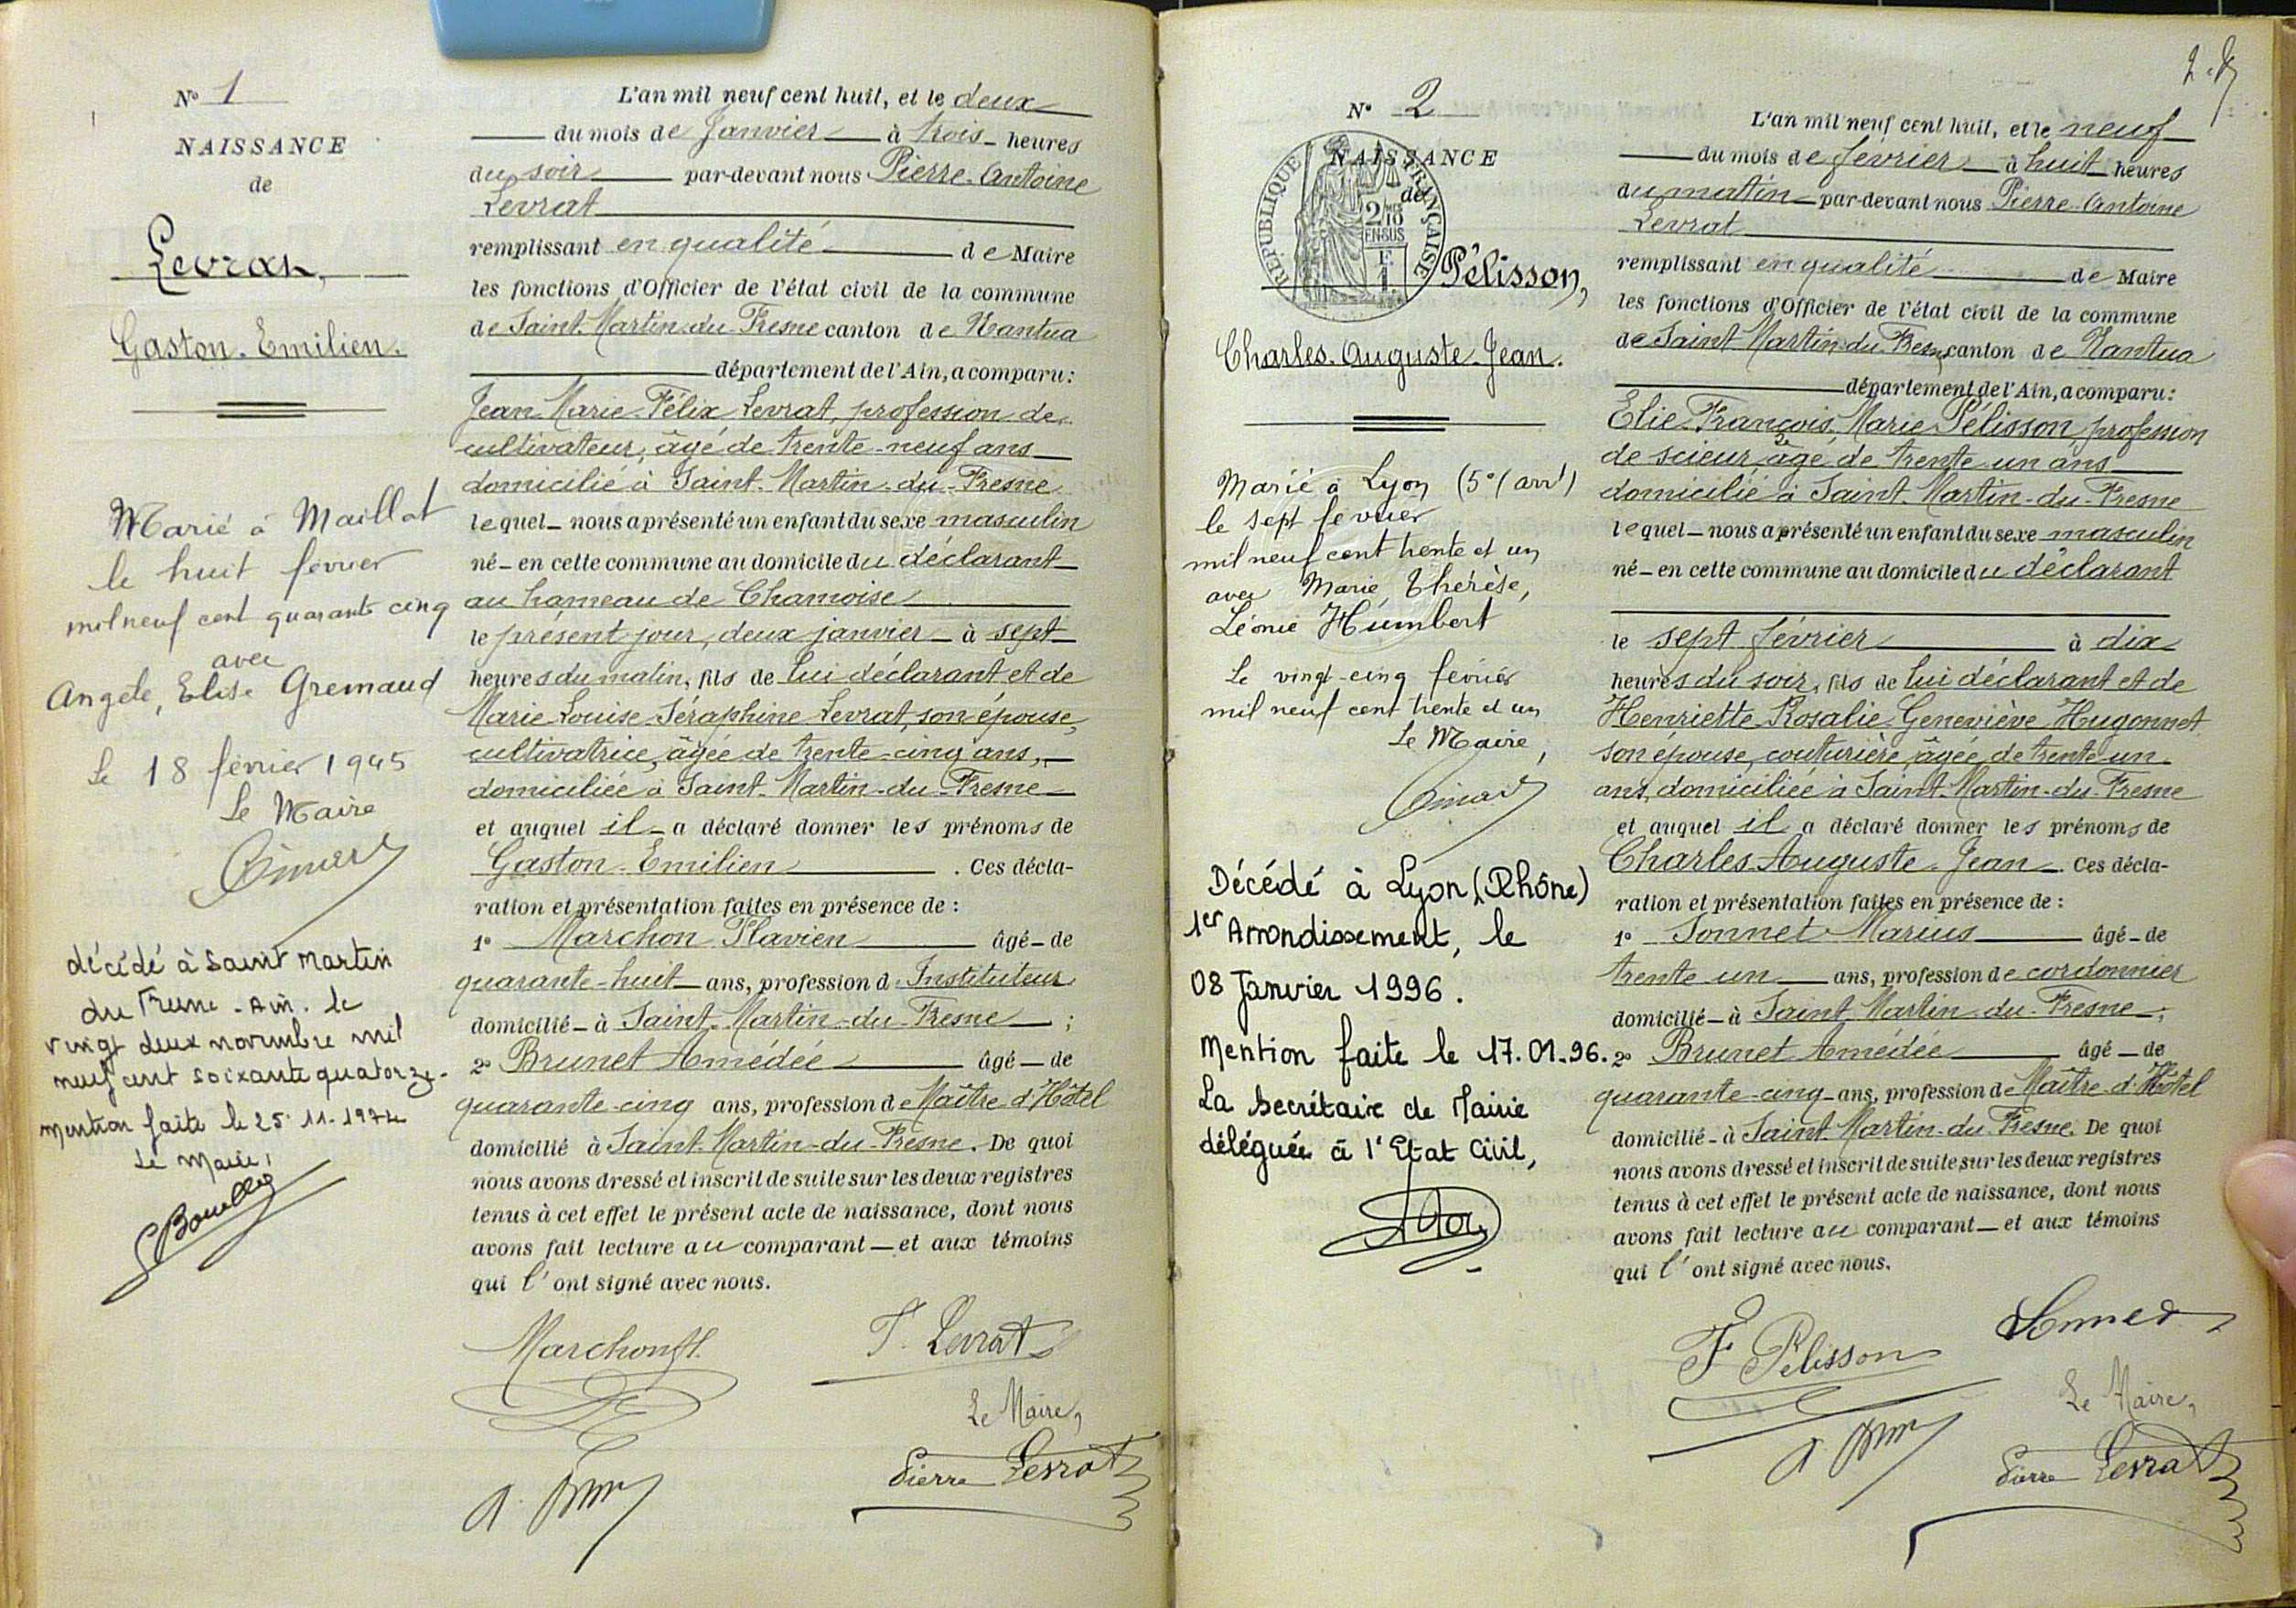 N° 1
NAISSANCE
de
Levrat,
Gaston-Emilien.
Marié à Maillat
le huit février
mil neuf cent quarante cinq
avec
Angèle, Elise Gremaud
Le 18 février 1945
Le Maire
décédé à Saint Martin
du Fresne - Ain. le
vingt deux novembre mil
neuf cent soixante quatorze.
Mention faite le 25.11.1974
Le Maire,
L'an mil neuf cent huit, et le deux
du mois de Janvier à trois heures
du soir par-devant nous Pierre-Antoine
Levrat
remplissant en qualité de Maire
les fonctions d'Officier de l'état civil de la commune
de Saint-Martin-du-Fresne canton de Nantua
département de l'Ain, a comparu :
Jean-Marie-Félix Levrat, profession de
cultivateur, âgé de trente-neuf ans
domicilié à Saint-Martin-du-Fresne
lequel nous a présenté un enfant du sexe masculin
né en cette commune au domicile du déclarant
au hameau de Chamoise
le présent jour, deux janvier à sept
heures du matin, fils de lui déclarant et de
Marie Louise Séraphine Levrat, son épouse,
cultivatrice, âgée de trente-cinq ans,
domiciliée à Saint-Martin-du-Fresne
et auquel il a déclaré donner les prénoms de
Gaston-Emilien . Ces décla-
ration et présentation faites en présence de :
1° Marchon Flavien âgé de
quarante-huit ans, profession d'Instituteur
domicilié à Saint-Martin-du-Fresne ;
2° Brunet Amédée âgé de
quarante-cinq ans, profession de Maître d'Hôtel
domicilié à Saint-Martin-du-Fresne. De quoi
nous avons dressé et inscrit de suite sur les deux registres
tenus à cet effet le présent acte de naissance, dont nous
avons fait lecture au comparant et aux témoins
qui l'ont signé avec nous.
Marchon fl.
F. Levrat
Le Maire,
Pierre Levrat
N° 2
NAISSANCE
de
RÉPUBLIQUE FRANÇAISE
2/10
EN SUS
Pélisson,
Charles-Auguste-Jean.
Marié à Lyon (5e arrt)
le sept février
mil neuf cent trente et un
avec Marie, Thérèse,
Léonie Humbert
Le vingt-cinq février
mil neuf cent trente et un
Le Maire,
Décédé à Lyon (Rhône)
1er Arrondissement, le
08 Janvier 1996.
Mention faite le 17.01.96.
La Secrétaire de Mairie
déléguée à l'Etat Civil,
L'an mil neuf cent huit, et le neuf
du mois de février à huit heures
du matin par-devant nous Pierre-Antoine
Levrat
remplissant en qualité de Maire
les fonctions d'Officier de l'état civil de la commune
de Saint-Martin-du-Fresne canton de Nantua
département de l'Ain, a comparu :
Elie-François-Marie Pélisson profession
de scieur, âgé de trente-un ans
domicilié à Saint-Martin-du-Fresne
lequel nous a présenté un enfant du sexe masculin
né en cette commune au domicile du déclarant
le sept février à dix
heures du soir, fils de lui déclarant et de
Henriette-Rosalie-Geneviève Hugonnet
son épouse, couturière, âgée de trente-un
ans, domiciliée à Saint-Martin-du-Fresne
et auquel il a déclaré donner les prénoms de
Charles-Auguste-Jean . Ces décla-
ration et présentation faites en présence de :
1° Sonnet Marius âgé de
trente un ans, profession de cordonnier
domicilié à Saint-Martin-du-Fresne ;
2° Brunet Amédée âgé de
quarante-cinq ans, profession de Maître d'Hôtel
domicilié à Saint-Martin-du-Fresne. De quoi
nous avons dressé et inscrit de suite sur les deux registres
tenus à cet effet le présent acte de naissance, dont nous
avons fait lecture au comparant et aux témoins
qui l'ont signé avec nous.
F Pélisson
Sonnet
Le Maire,
Pierre Levrat